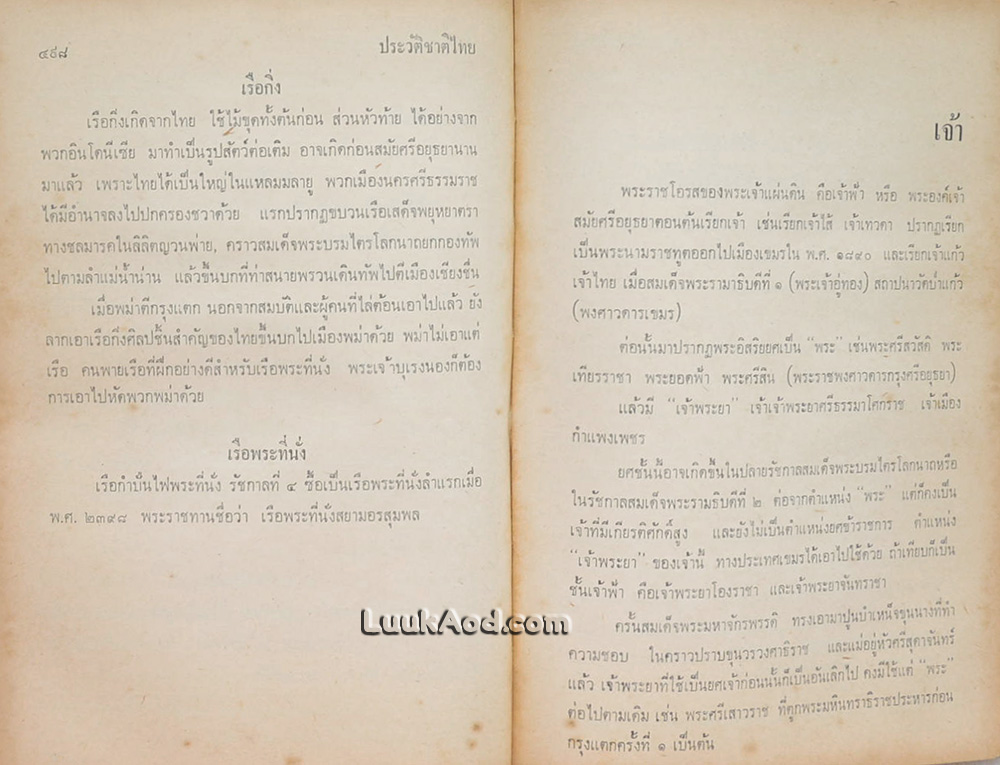 ๔๙๘ ประวัติชาติไทย
เรือกิ่ง
เรือกิ่งเกิดจากไทย ใช้ไม้ขุดทั้งต้นก่อน ส่วนหัวท้าย ได้อย่างจาก
พวกอินโดนีเซีย มาทำเป็นรูปสัตว์ต่อเติม อาจเกิดก่อนสมัยศรีอยุธยานาน
มาแล้ว เพราะไทยได้เป็นใหญ่ในแหลมมลายู พวกเมืองนครศรีธรรมราช
ได้มีอำนาจลงไปปกครองชวาด้วย แรกปรากฏขบวนเรือเสด็จพยุหยาตรา
ทางชลมารคในลิลิตญวนพ่าย, คราวสมเด็จพระบรมไตรโลกนาถยกกองทัพ
ไปตามลำแม่น้ำน่าน แล้วขึ้นบกที่ท่าสนายพรวนเดินทัพไปตีเมืองเชียงชื่น
เมื่อพม่าตีกรุงแตก นอกจากสมบัติและผู้คนที่ไล่ต้อนเอาไปแล้ว ยัง
ลากเอาเรือกิ่งศิลปชิ้นสำคัญของไทยขึ้นบกไปเมืองพม่าด้วย พม่าไม่เอาแต่
เรือ คนพายเรือที่ฝึกอย่างดีสำหรับเรือพระที่นั่ง พระเจ้าบุเรงนองก็ต้อง
การเอาไปหัดพวกพม่าด้วย
เรือพระที่นั่ง
เรือกำปั่นไฟพระที่นั่ง รัชกาลที่ ๔ ซื้อเป็นเรือพระที่นั่งลำแรกเมื่อ
พ.ศ. ๒๓๙๘ พระราชทานชื่อว่า เรือพระที่นั่งสยามอรสุมพล
เจ้า
พระราชโอรสของพระเจ้าแผ่นดิน คือเจ้าฟ้า หรือ พระองค์เจ้า
สมัยศรีอยุธยาตอนต้นเรียกเจ้า เช่นเรียกเจ้าไส้ เจ้าเทวดา ปรากฏเรียก
เป็นพระนามราชทูตออกไปเมืองเขมรใน พ.ศ. ๑๘๙๐ และเรียกเจ้าแก้ว
เจ้าไทย เมื่อสมเด็จพระรามาธิบดีที่ ๑ (พระเจ้าอู่ทอง) สถาปนาวัดป่าแก้ว
(พงศาวดารเขมร)
ต่อนั้นมาปรากฏพระอิสริยยศเป็น "พระ" เช่นพระศรีสวัสดิ พระ
เทียรราชา พระยอดฟ้า พระศรีสิน (พระราชพงศาวดารกรุงศรีอยุธยา)
แล้วมี "เจ้าพระยา" เจ้าเจ้าพระยาศรีธรรมาโศกราช เจ้าเมือง
กำแพงเพชร
ยศชั้นนี้อาจเกิดขึ้นในปลายรัชกาลสมเด็จพระบรมไตรโลกนาถหรือ
ในรัชกาลสมเด็จพระรามธิบดีที่ ๒ ต่อจากตำแหน่ง "พระ" แต่ก็คงเป็น
เจ้าที่มีเกียรติศักดิ์สูง และยังไม่เป็นตำแหน่งยศข้าราชการ ตำแหน่ง
"เจ้าพระยา" ของเจ้านี้ ทางประเทศเขมรได้เอาไปใช้ด้วย ถ้าเทียบก็เป็น
ชั้นเจ้าฟ้า คือเจ้าพระยาโองราชา และเจ้าพระยาจันทราชา
ครั้นสมเด็จพระมหาจักรพรรดิ ทรงเอามาปูนบำเหน็จขุนนางที่ทำ
ความชอบ ในคราวปราบขุนวรวงศาธิราช และแม่อยู่หัวศรีสุดาจันทร์
แล้ว เจ้าพระยาที่ใช้เป็นยศเจ้าก่อนนั้นก็เป็นอันเลิกไป คงมีใช้แต่ "พระ"
ต่อไปตามเดิม เช่น พระศรีเสาวราช ที่ถูกพระมหินทราธิราชประหารก่อน
กรุงแตกครั้งที่ ๑ เป็นต้น
LuukAod.com